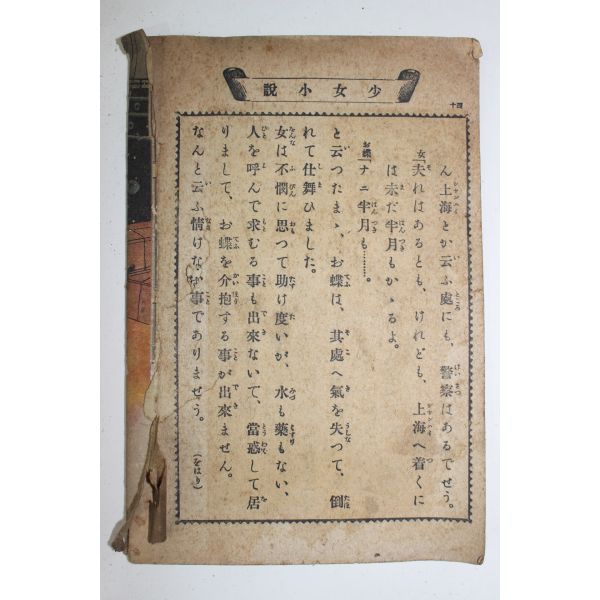 少女小說
四十
ん上海とか云ふ處にも、警察はあるでせう。
女「夫れはあるとも、けれども、上海へ着くに
は未だ半月もかゝるよ。
お蝶「ナニ半月も………。
と云つたまゝ、お蝶は、其處へ氣を失つて、倒
れて仕舞ひました。
女は不憫に思つて助け度いが、水も藥もない、
人を呼んで求むる事も出來ないで、當惑して居
りまして、お蝶を介抱する事が出來ません。
なんと云ふ情けない事でありませう。
(をはり)